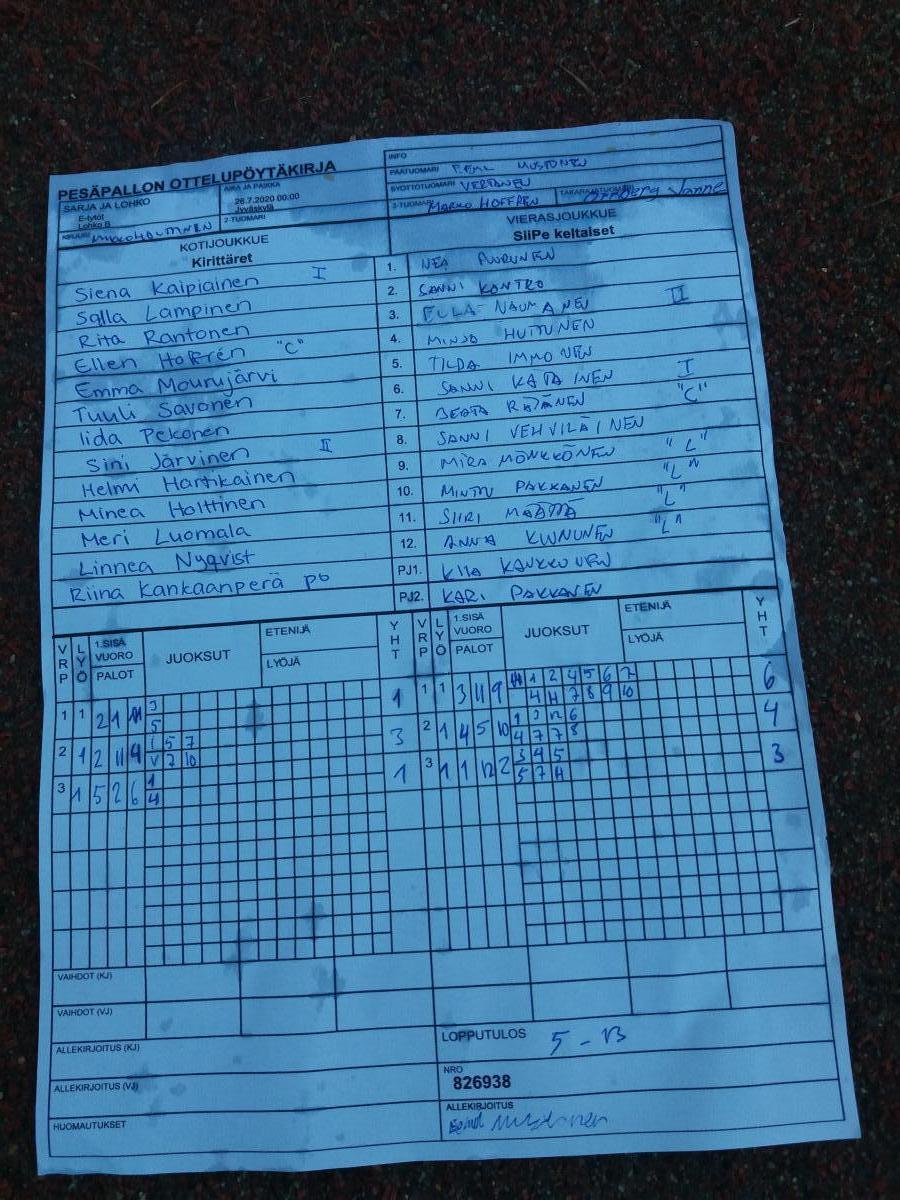 PESÄPALLON OTTELUPÖYTÄKIRJA
SARJA JA LOHKO
E-tytöt
Lohko B
AIKA JA PAIKKA
26.7.2020 00:00
Jyväskylä
KIRJURI
2-TUOMARI
INFO
PÄÄTUOMARI MUSTONEN
SYÖTTÖTUOMARI VERTANEN
3-TUOMARI MARKO HOFFREN
TAKARAJATUOMARI Janne
KOTIJOUKKUE
Kirittäret
VIERASJOUKKUE
SiiPe keltaiset
Siena Kaipiainen I
1. NEA PUURUNEN
Salla Lampinen
2. SANNI KONTRO
Rita Rantonen
3. NAUMANEN II
Ellen Hoffrén "C"
4. MINJA HUTTUNEN
Emma Mourujärvi
5. TILDA IMMONEN
Tuuli Savonen
6. SANNI KATAINEN I
Iida Pekonen
7. BEATA RÄTÄNEN "C"
Sini Järvinen II
8. SANNI VEHVILÄINEN
Helmi Hartikainen
9. MIRA MÖNKKÖNEN "L"
Minea Holttinen
10. MINTTU PAKKANEN "L"
Meri Luomala
11. SIIRI MÄÄTTÄ "L"
Linnea Nyqvist
12. ANNA KINNUNEN "L"
Riina Kankaanperä
PJ1. KIIA KANKKUNEN
PJ2. KARI PAKKANEN
VRP LYÖ 1.SISÄ VUORO PALOT JUOKSUT ETENIJÄ LYÖJÄ YHT
VRP LYÖ 1.SISÄ VUORO PALOT JUOKSUT ETENIJÄ LYÖJÄ YHT
1 1 2 1 3 1
5
1 1 3 11 9 1 2 4 5 6 7 6
4 H 7 8 9 10
2 1 2 11 4 1 5 7 3
V 7 10
2 1 4 5 10 1 3 12 6 4
4 7 7 8
3 1 5 2 6 1 1
4
3 1 1 12 2 3 4 5 3
5 7 H
VAIHDOT (KJ)
VAIHDOT (VJ)
ALLEKIRJOITUS (KJ)
ALLEKIRJOITUS (VJ)
HUOMAUTUKSET
LOPPUTULOS 5 - 13
NRO
826938
ALLEKIRJOITUS